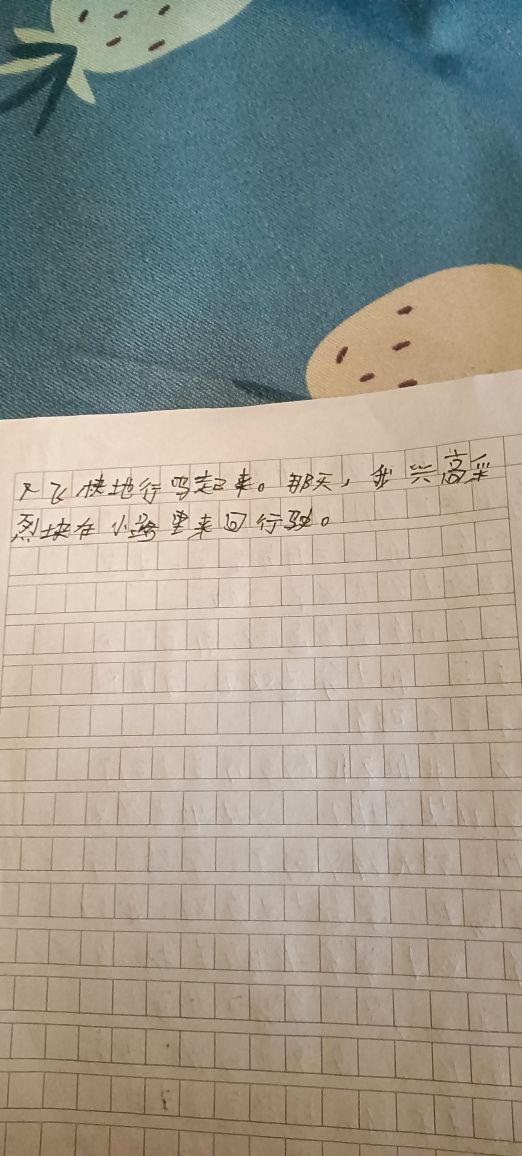 飞快地行驶起来。那天，我兴高采
烈块在小路里来回行驶。